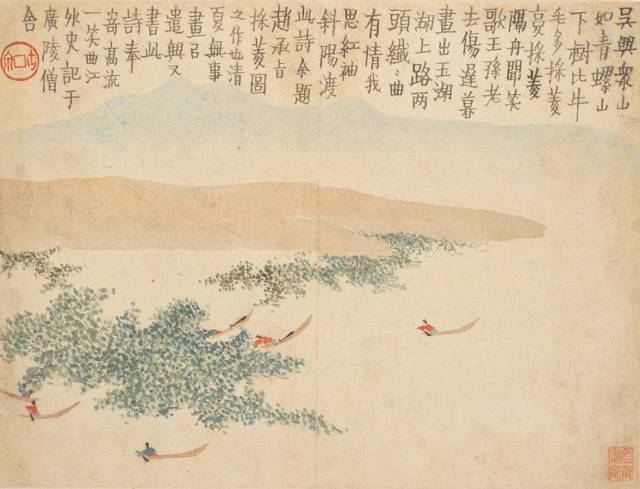 吳興衆山
如青螺山
下樹比牛
毛多採菱
复採菱
隔舟聞笑
歌王孫老
去傷遲暮
畫出玉湖
湖上路兩
頭纖〻曲
有情我
思紅袖
斜陽渡
此詩余題
趙承旨
採菱圖
之作也清
夏無事
畫已
遣興又
書此
詩奉
寄高流
一笑曲江
外史記于
廣陵僧
舍